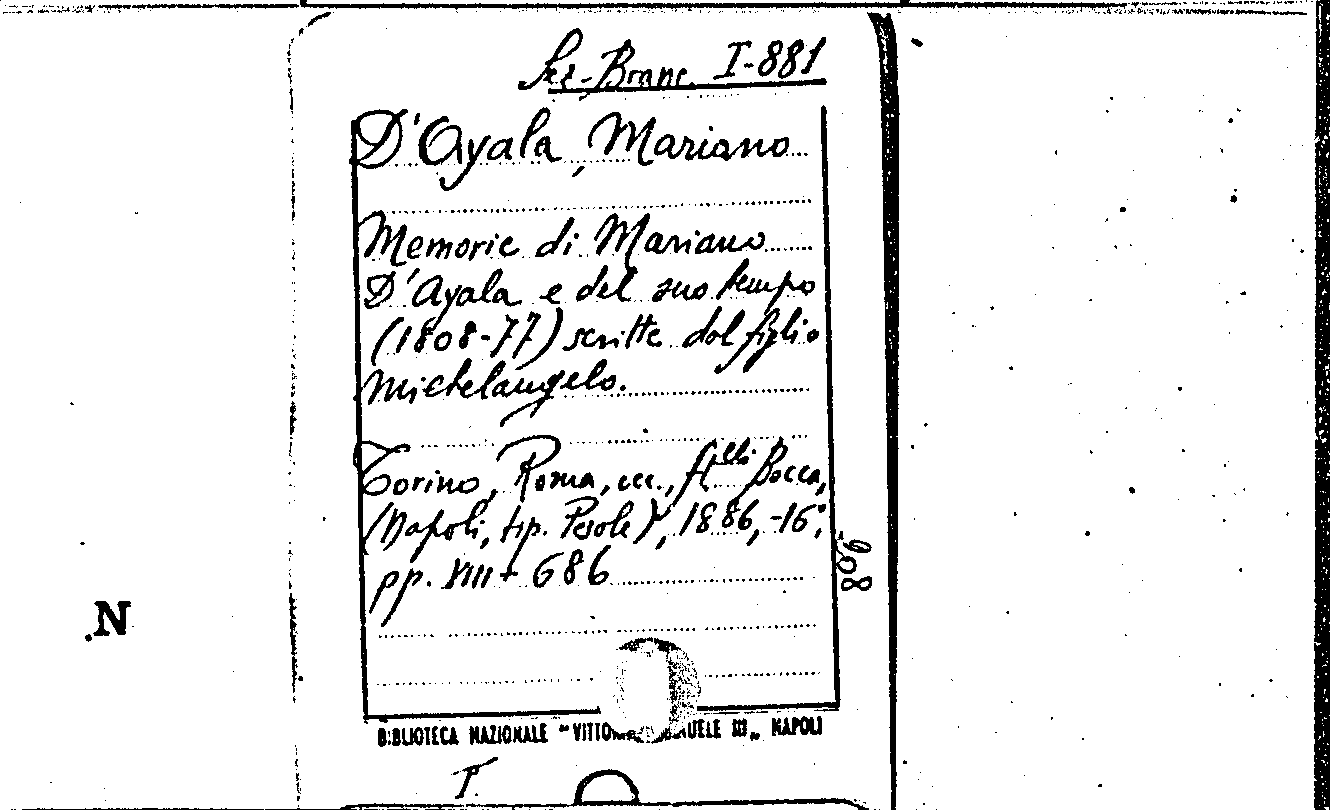 Sez. Branc. I-881
D'Ayala, Mariano
Memorie di Mariano
D'Ayala e del suo tempo
(1808-77) scritte dal figlio
Michelangelo.
Torino, Roma, ecc., ftelli Bocca,
(Napoli, tip. Pesole), 1886, -16°,
pp. VIII + 686
908
N
BIBLIOTECA NAZIONALE "VITTORIO EMANUELE III„ NAPOLI
T.